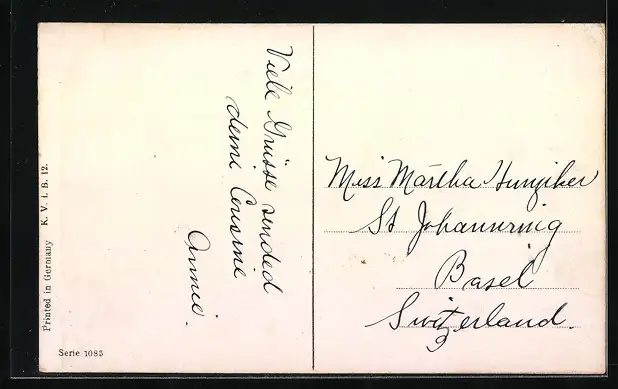 Viele Grüsse sended
deine Cousine
Annie.
Miss Martha Hunziker
St Johannring
Basel
Switzerland.
Printed in Germany K. V. i. B. 12.
Serie 1083